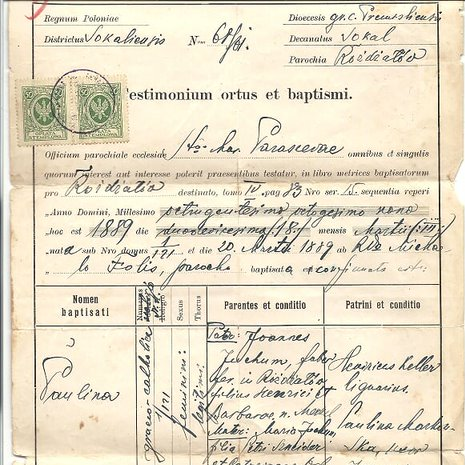 Regnum Poloniae
Districtus Sokaliensis
N. 68/31.
Dioecesis gr. c. Premysliensis
Decanatus Sokal
Parochia Rozdzalów
Testimonium ortus et baptismi.
Officium parochiale ecclesiae Stae Mar. Parascevae omnibus et singulis
quorum interest aut interesse poterit praesentibus testatur, in libro metrices baptisatorum
pro destinato, tomo IV pag 83 Nro ser. 15. sequentia reperi
Anno Domini, Millesimo octingentesimo octogesimo nono
hoc est 1889 die duodevicesima /18./ mensis Martii /III/
nata sub Nro domus 1/121 et die 20. Martii 1889 ab Rvd. Micha-
lo Folis, parocho baptisata et confirmata est:
Nomen baptisati
Numerus
Religio
Sexus
Thorus
Parentes et conditio
Patrini et conditio
Paulina
graeco-catholica
1/121
feminini
legitimi
Pater: Joannes
faber
fer. in
filius Henrici et
Barbarae n.
Mater: Maria
filia Petri
Henricus Keller
lignarius.
Paulina